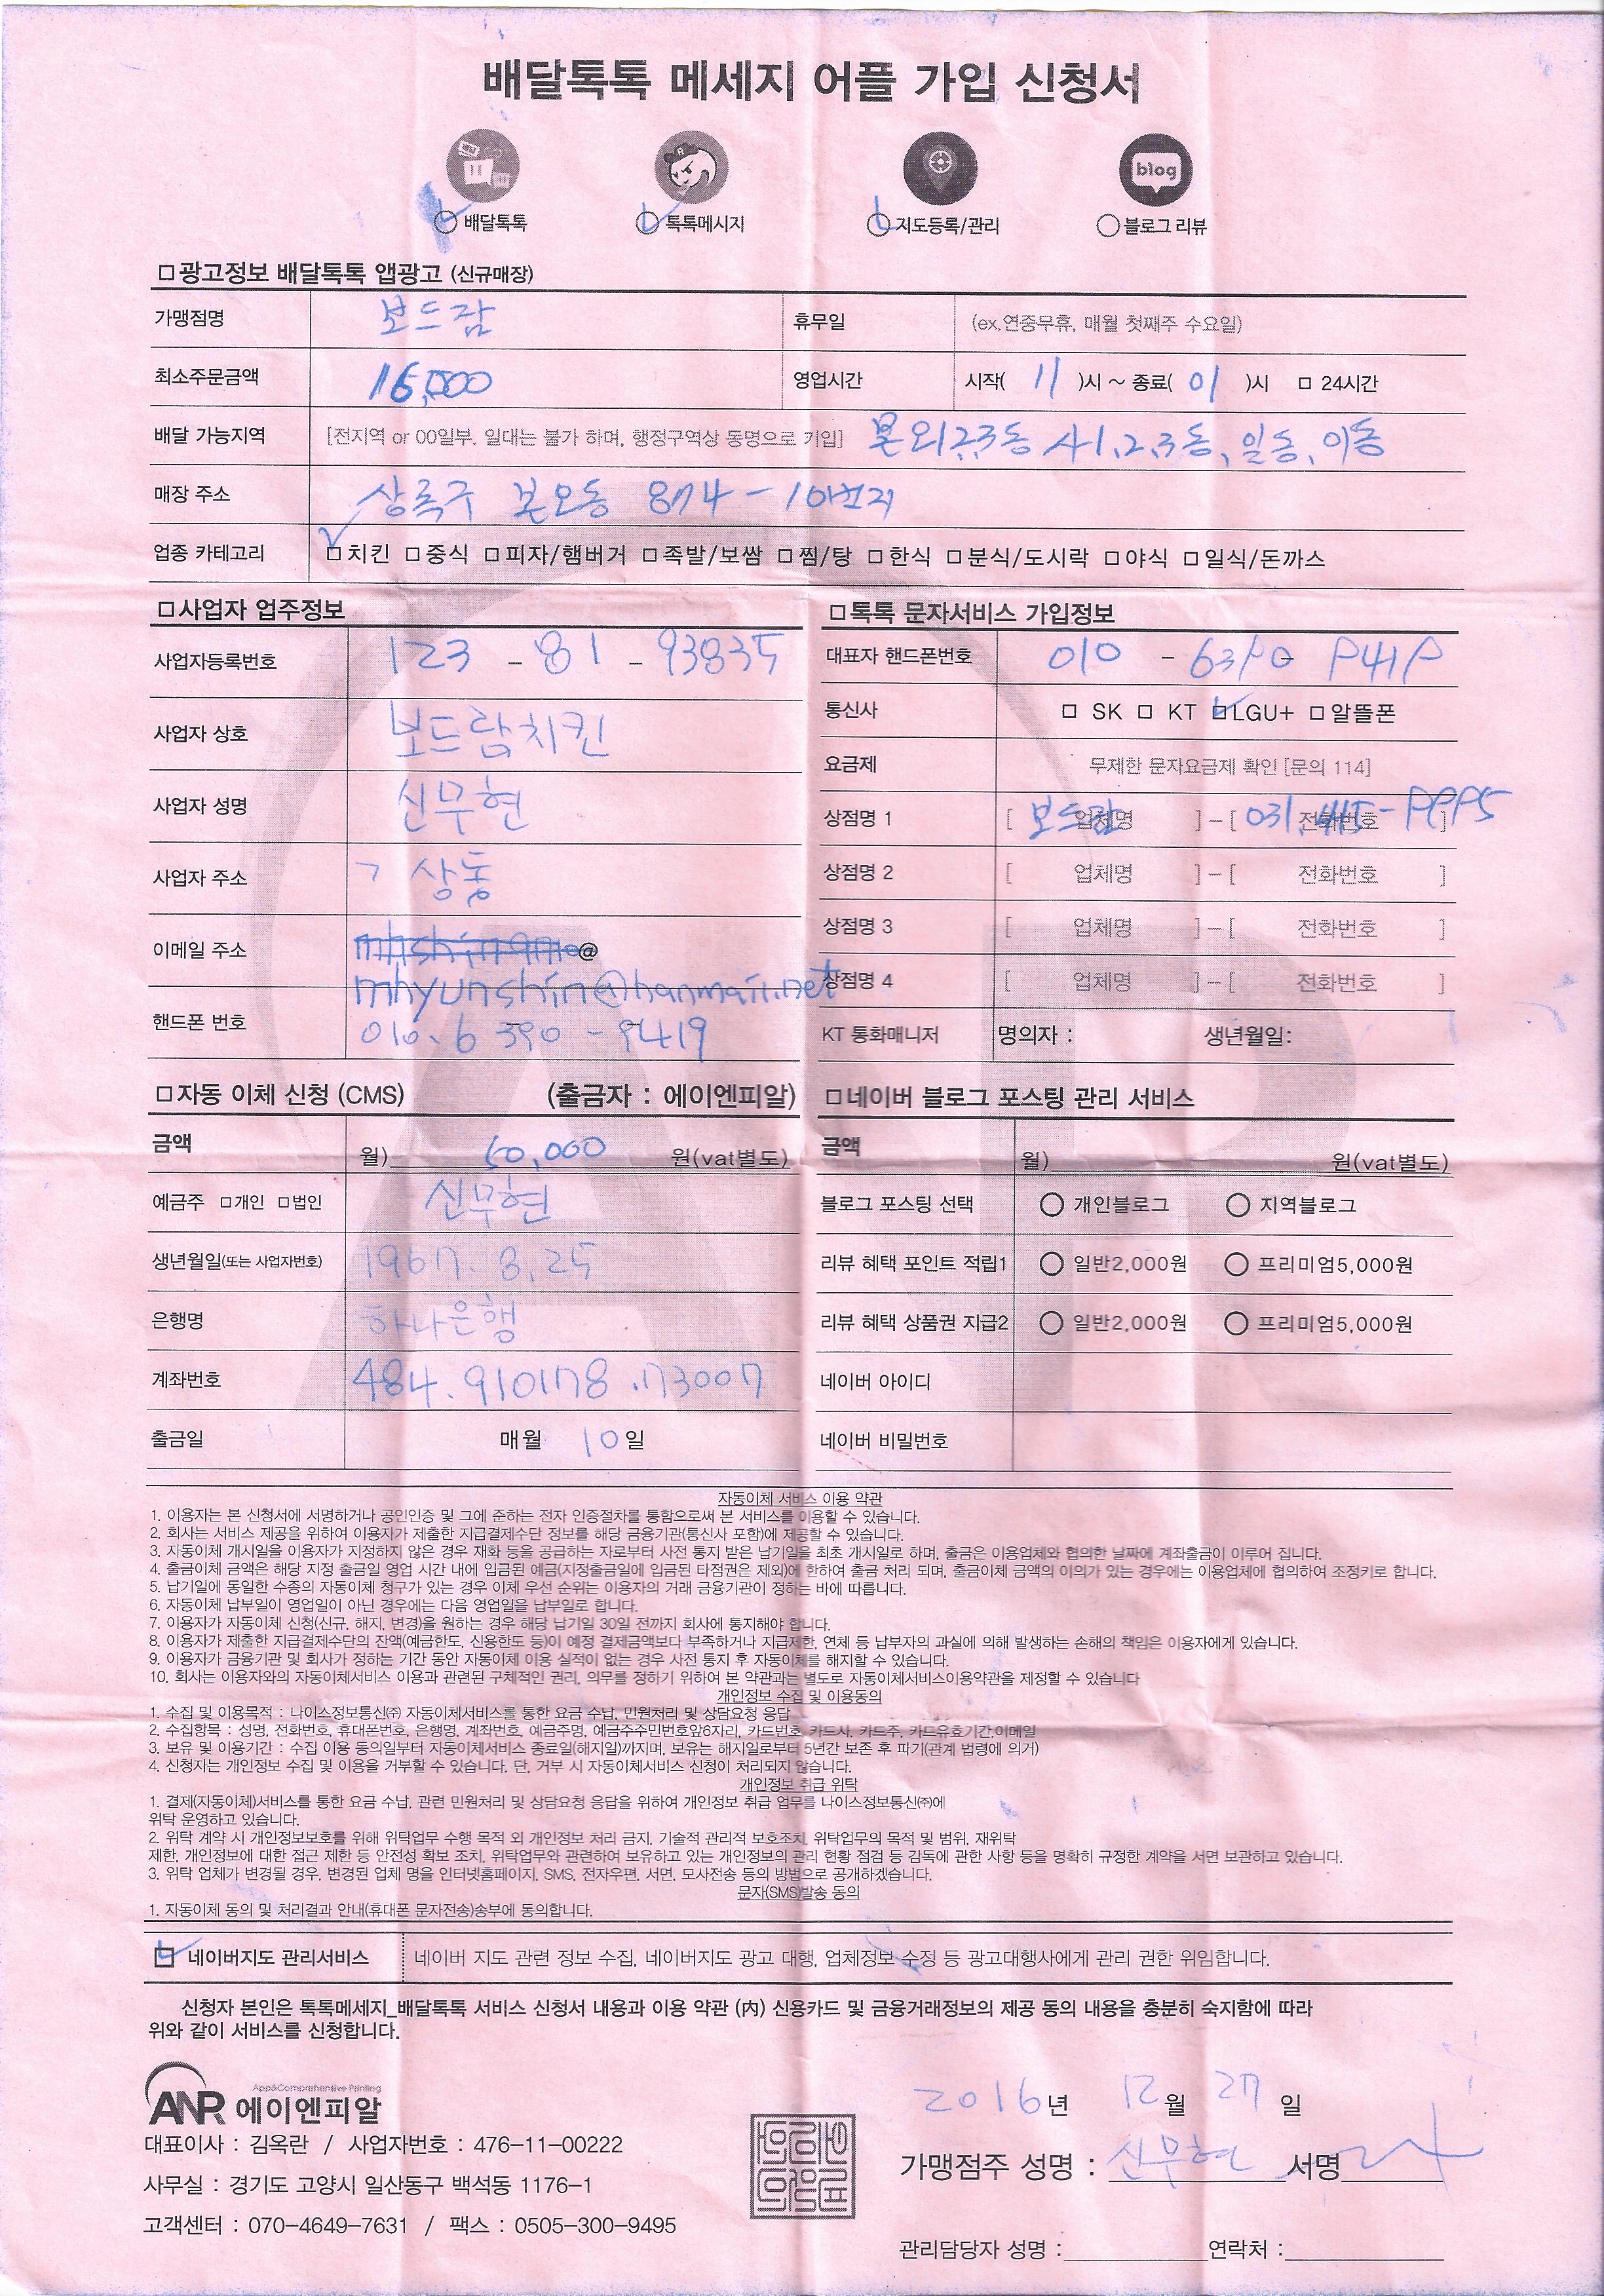 배달톡톡 메세지 어플 가입 신청서
blog
배달톡톡 톡톡메시지 지도등록/관리 블로그 리뷰
광고정보 배달톡톡 앱광고 (신규매장)
가맹점명 보드람 휴무일 (ex,연중무휴, 매월 첫째주 수요일)
최소주문금액 16,000 영업시간 시작( 11 )시 ~ 종료( 01 )시 □ 24시간
배달 가능지역 [전지역 or 00일부, 일대는 불가 하며, 행정구역상 동명으로 기입] 본오1,2,3동 사1,2,3동, 일동, 이동
매장 주소 상록구 본오동 874-10번지
업종 카테고리 □치킨 □중식 □피자/햄버거 □족발/보쌈 □찜/탕 □한식 □분식/도시락 □야식 □일식/돈까스
□사업자 업주정보 □톡톡 문자서비스 가입정보
사업자등록번호 123 - 81 - 93835 대표자 핸드폰번호 010 - 6390 - 9419
사업자 상호 보드람치킨 통신사 □ SK □ KT □LGU+ □알뜰폰
요금제 무제한 문자요금제 확인 [문의 114]
사업자 성명 신무현 상점명 1 [ 보드람 업체명 ] - [ 031. 415 - 9995 전화번호 ]
사업자 주소 상동 상점명 2 [ 업체명 ] - [ 전화번호 ]
상점명 3 [ 업체명 ] - [ 전화번호 ]
이메일 주소 @
mhyunshin@hanmail.net 상점명 4 [ 업체명 ] - [ 전화번호 ]
핸드폰 번호 010. 6390 - 9419 KT 통화매니저 명의자 : 생년월일:
□자동 이체 신청 (CMS) (출금자 : 에이엔피알) □네이버 블로그 포스팅 관리 서비스
금액 월) 50,000 원(vat별도) 금액 월) 원(vat별도)
예금주 □개인 □법인 신무현 블로그 포스팅 선택 ○ 개인블로그 ○ 지역블로그
생년월일(또는 사업자번호) 1967. 8. 25 리뷰 혜택 포인트 적립1 ○ 일반2,000원 ○ 프리미엄5,000원
은행명 하나은행 리뷰 혜택 상품권 지급2 ○ 일반2,000원 ○ 프리미엄5,000원
계좌번호 484. 910178 .73007 네이버 아이디
출금일 매월 10일 네이버 비밀번호
자동이체 서비스 이용 약관
1. 이용자는 본 신청서에 서명하거나 공인인증 및 그에 준하는 전자 인증절차를 통함으로써 본 서비스를 이용할 수 있습니다.
2. 회사는 서비스 제공을 위하여 이용자가 제출한 지급결제수단 정보를 해당 금융기관(통신사 포함)에 제공할 수 있습니다.
3. 자동이체 개시일을 이용자가 지정하지 않은 경우 재화 등을 공급하는 자로부터 사전 통지 받은 납기일을 최초 개시일로 하며, 출금은 이용업체와 협의한 날짜에 계좌출금이 이루어 집니다.
4. 출금이체 금액은 해당 지정 출금일 영업 시간 내에 입금된 예금(지정출금일에 입금된 타점권은 제외)에 한하여 출금 처리 되며, 출금이체 금액의 이의가 있는 경우에는 이용업체에 협의하여 조정키로 합니다.
5. 납기일에 동일한 수종의 자동이체 청구가 있는 경우 이체 우선 순위는 이용자의 거래 금융기관이 정하는 바에 따릅니다.
6. 자동이체 납부일이 영업일이 아닌 경우에는 다음 영업일을 납부일로 합니다.
7. 이용자가 자동이체 신청(신규, 해지, 변경)을 원하는 경우 해당 납기일 30일 전까지 회사에 통지해야 합니다.
8. 이용자가 제출한 지급결제수단의 잔액(예금한도, 신용한도 등)이 예정 결제금액보다 부족하거나 지급제한, 연체 등 납부자의 과실에 의해 발생하는 손해의 책임은 이용자에게 있습니다.
9. 이용자가 금융기관 및 회사가 정하는 기간 동안 자동이체 이용 실적이 없는 경우 사전 통지 후 자동이체를 해지할 수 있습니다.
10. 회사는 이용자와의 자동이체서비스 이용과 관련된 구체적인 권리, 의무를 정하기 위하여 본 약관과는 별도로 자동이체서비스이용약관을 제정할 수 있습니다
개인정보 수집 및 이용동의
1. 수집 및 이용목적 : 나이스정보통신㈜ 자동이체서비스를 통한 요금 수납, 민원처리 및 상담요청 응답
2. 수집항목 : 성명, 전화번호, 휴대폰번호, 은행명, 계좌번호, 예금주명, 예금주주민번호앞6자리, 카드번호, 카드사, 카드주, 카드유효기간,이메일
3. 보유 및 이용기간 : 수집 이용 동의일부터 자동이체서비스 종료일(해지일)까지며, 보유는 해지일로부터 5년간 보존 후 파기(관계 법령에 의거)
4. 신청자는 개인정보 수집 및 이용을 거부할 수 있습니다. 단, 거부 시 자동이체서비스 신청이 처리되지 않습니다.
개인정보 취급 위탁
1. 결제(자동이체)서비스를 통한 요금 수납, 관련 민원처리 및 상담요청 응답을 위하여 개인정보 취급 업무를 나이스정보통신㈜에
위탁 운영하고 있습니다.
2. 위탁 계약 시 개인정보보호를 위해 위탁업무 수행 목적 외 개인정보 처리 금지, 기술적 관리적 보호조치, 위탁업무의 목적 및 범위, 재위탁
제한, 개인정보에 대한 접근 제한 등 안전성 확보 조치, 위탁업무와 관련하여 보유하고 있는 개인정보의 관리 현황 점검 등 감독에 관한 사항 등을 명확히 규정한 계약을 서면 보관하고 있습니다.
3. 위탁 업체가 변경될 경우, 변경된 업체 명을 인터넷홈페이지, SMS, 전자우편, 서면, 모사전송 등의 방법으로 공개하겠습니다.
문자(SMS)발송 동의
1. 자동이체 동의 및 처리결과 안내(휴대폰 문자전송)송부에 동의합니다.
네이버지도 관리서비스 네이버 지도 관련 정보 수집, 네이버지도 광고 대행, 업체정보 수정 등 광고대행사에게 관리 권한 위임합니다.
신청자 본인은 톡톡메세지_배달톡톡 서비스 신청서 내용과 이용 약관 (內) 신용카드 및 금융거래정보의 제공 동의 내용을 충분히 숙지함에 따라
위와 같이 서비스를 신청합니다.
App&Comprehensive Printing
ANR 에이엔피알
2016년 12월 27일
대표이사 : 김옥란 / 사업자번호 : 476-11-00222
가맹점주 성명 : 신무현 서명
사무실 : 경기도 고양시 일산동구 백석동 1176-1
고객센터 : 070-4649-7631 / 팩스 : 0505-300-9495
관리담당자 성명 : 연락처 :